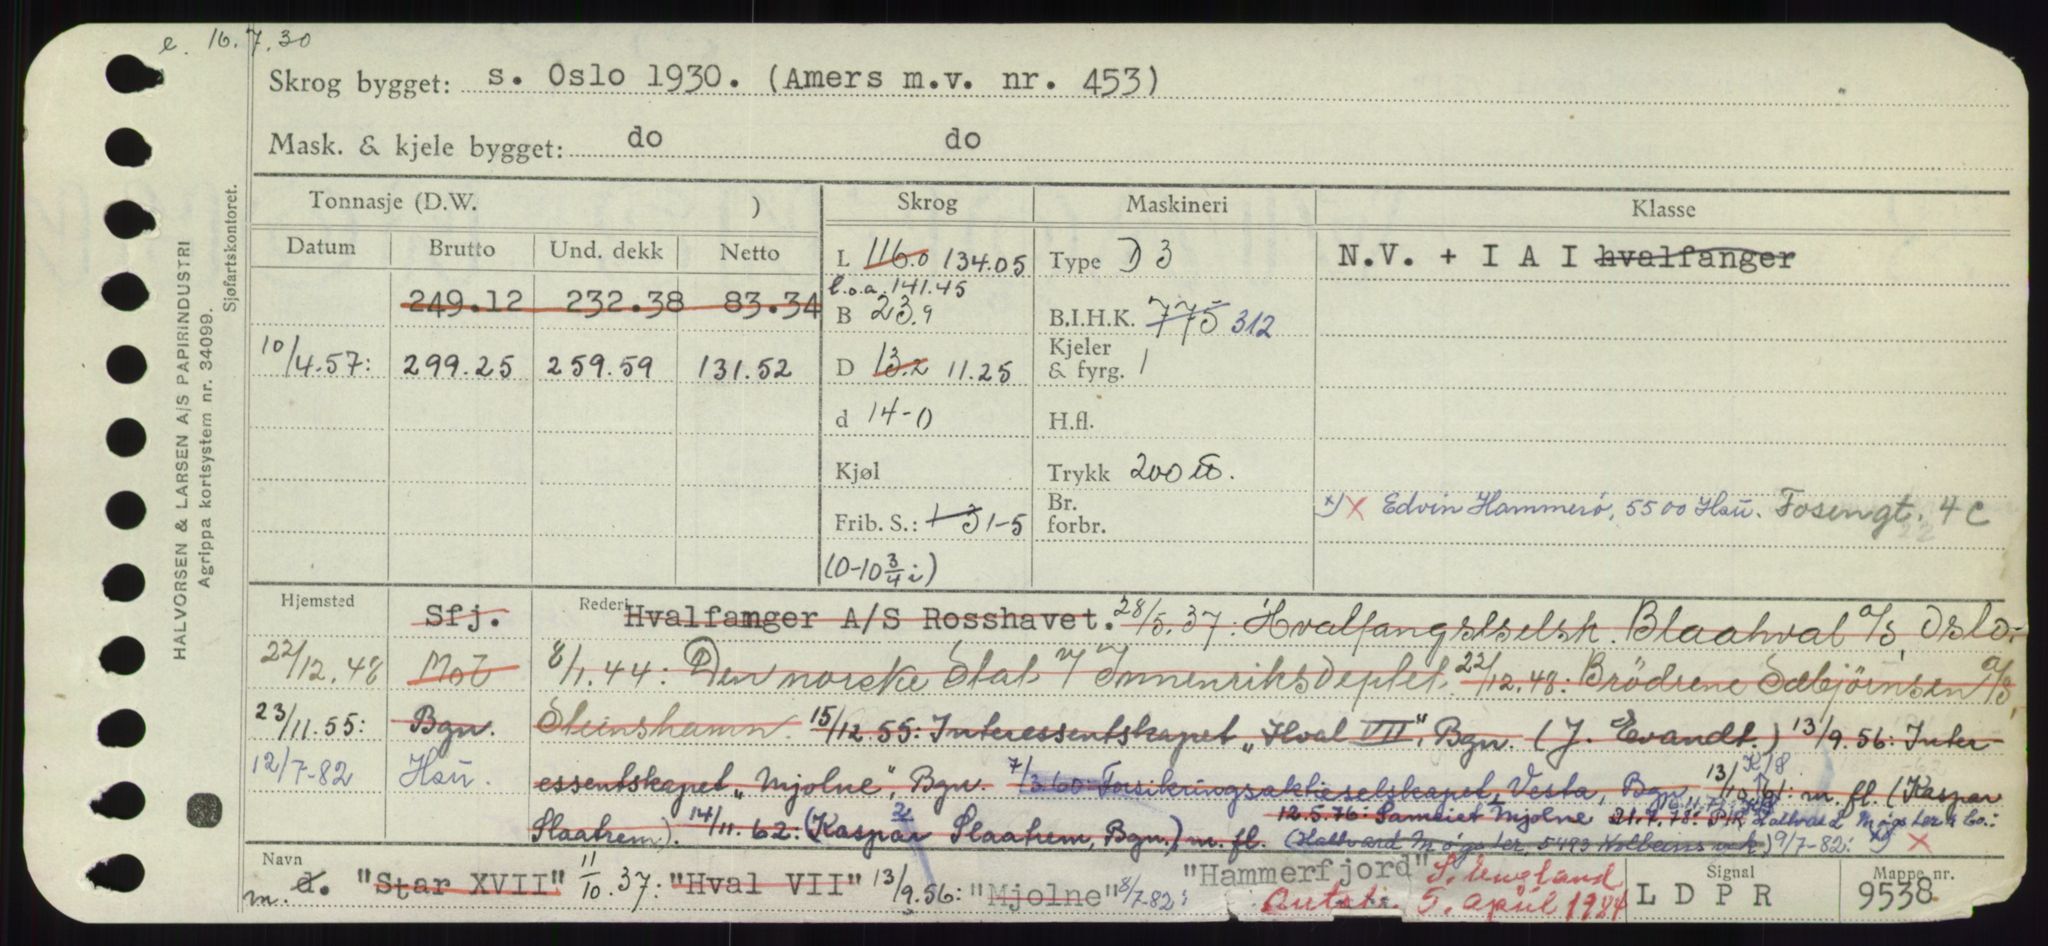 e. 16.7.30
Skrog bygget: s. Oslo 1930. (Amers m.v. nr. 453)
Mask. & kjele bygget: do do
Tonnasje (D.W. ) Skrog Maskineri Klasse
Datum Brutto Und. dekk Netto
L 116.0 134.05 Type D 3 N.V. + I A I hvalfanger
l.o.a. 141.45
249.12 232.38 83.34
B 23.9 B.I.H.K. 775 312
10/4.57: 299.25 259.59 131.52
D 13.2 11.25 Kjeler & fyrg. 1
d 14-0 H.fl.
Kjøl Trykk 200
Frib. S.: 1-3 1-5 Br. forbr.
x) X Edvin Hammerø, 5500 Hau. Fosengt. 4c
(0-10 3/4 i)
Hjemsted Sfj. Rederi Hvalfamger A/S Rosshavet. 28/5.37: Hvalfangstselsk. Blaahval a/s, Oslo:
22/12.48 Mol 8/1.44: Den norske Stat v/ Innenriksdeptet 22/12.48: Brödrene Sæbjørnsen a/s,
23/11.55: Bgn. Steinshamn. 15/12.55: Interessentskapet "Hval VII", Bgn. (J. Evandt.) 13/9.56: Inter-
12/7-82 Hau. essentskapet "Mjolne", Bgn. 7/3.60 Forsikringsaktieselskapet Vesta, Bgn. 13/10.61: K/S m. fl. (Kaspar
Slaatrem). 14/11.62: (Kaspar Slaatrem, Bgn.) m. fl. 12.5.76: Sameiet Mjolne 21.7.78: P/R Hallvard Møgster & Co.:
(Hallvard Møgster, 5483 ) 9/7-82: x) X
Navn
m. d. "Star XVII" 11/10.37: "Hval VII" 13/9.56: "Mjolne" 8/7-82: "Hammerfjord" S. England
5. april 1984
Signal L D P R
Mappe nr. 9538
HALVORSEN & LARSEN A/S PAPIRINDUSTRI
Agrippa kortsystem nr. 34099.
Sjøfartskontoret.